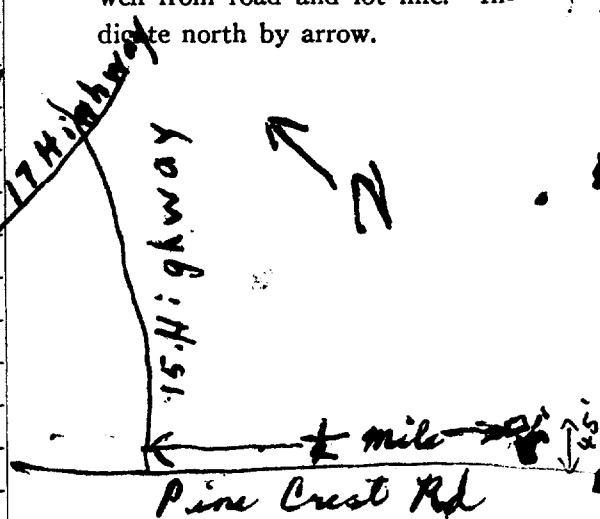 well from road and lot line. In-
dicate north by arrow.
17 Highway
15. Highway
N
mile
45'
Pine Crest Rd